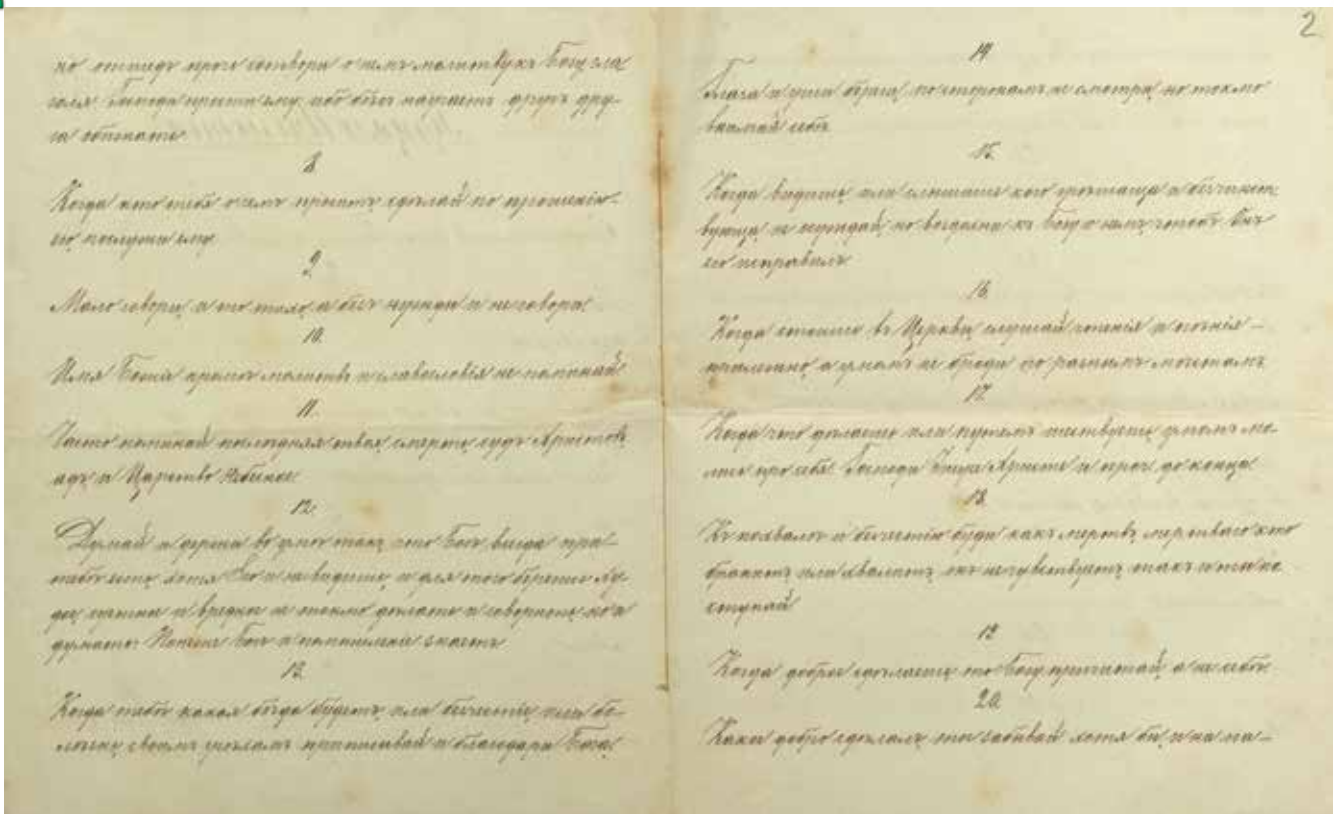 2
но отшедъ прочь сотвори о немъ молитву къ Богу гла
голя Господи прости ему, ибо бѣсъ научаетъ другъ дру-
га обижати.
8.
Когда кто тебя о чемъ проситъ, сдѣлай по прошенію
его послужи ему
9.
Мало говори, и то тихо, а безъ нужды и не говори.
10.
Имя Божіе кромѣ молитвъ и славословія не поминай
11.
Часто поминай послѣдняя твоя, смерть, судъ Христовъ,
адъ и Царство Небесное
12.
Думай и держи во умѣ такъ, что Богъ всегда при
тебѣ есть, хотя Его и не видишь, и для того берегись ху-
да и вредна не токмо дѣлать и говорить, но и
думать. Понеже Богъ и помышленія знаетъ
13.
Когда тебѣ какая бѣда будетъ, или безчестіе, или бо-
лѣзнь, своимъ грѣхамъ приписывай и благодари Бога.
14.
Глаза и уши береги, по сторонамъ не смотри, но токмо
внимай себѣ
15.
Когда видишь или слышишь кого грѣшаща и безчинст-
вующа, не осуждай, но воздохни къ Богу о немъ, чтобъ Онъ
его исправилъ
16.
Когда стоишь въ Церкви, слушай чтенія и пѣнія
прилежно, а умомъ не броди по разнымъ мѣстамъ
17.
Когда что дѣлаешь или путемъ шествуешь, умомъ мо-
лись про себя: Господи Іисусе Христе и проч. до конца
18.
Къ похваламъ и безчестію буди какъ мертвъ, мертваго кто
бранитъ или хвалитъ, онъ не чувствуетъ, такъ и ты по
ступай
19.
Когда доброе сдѣлаешь, то Богу причитай, а не себѣ
20.
Какое добро сдѣлалъ, то забывай, хотя бы и на па-